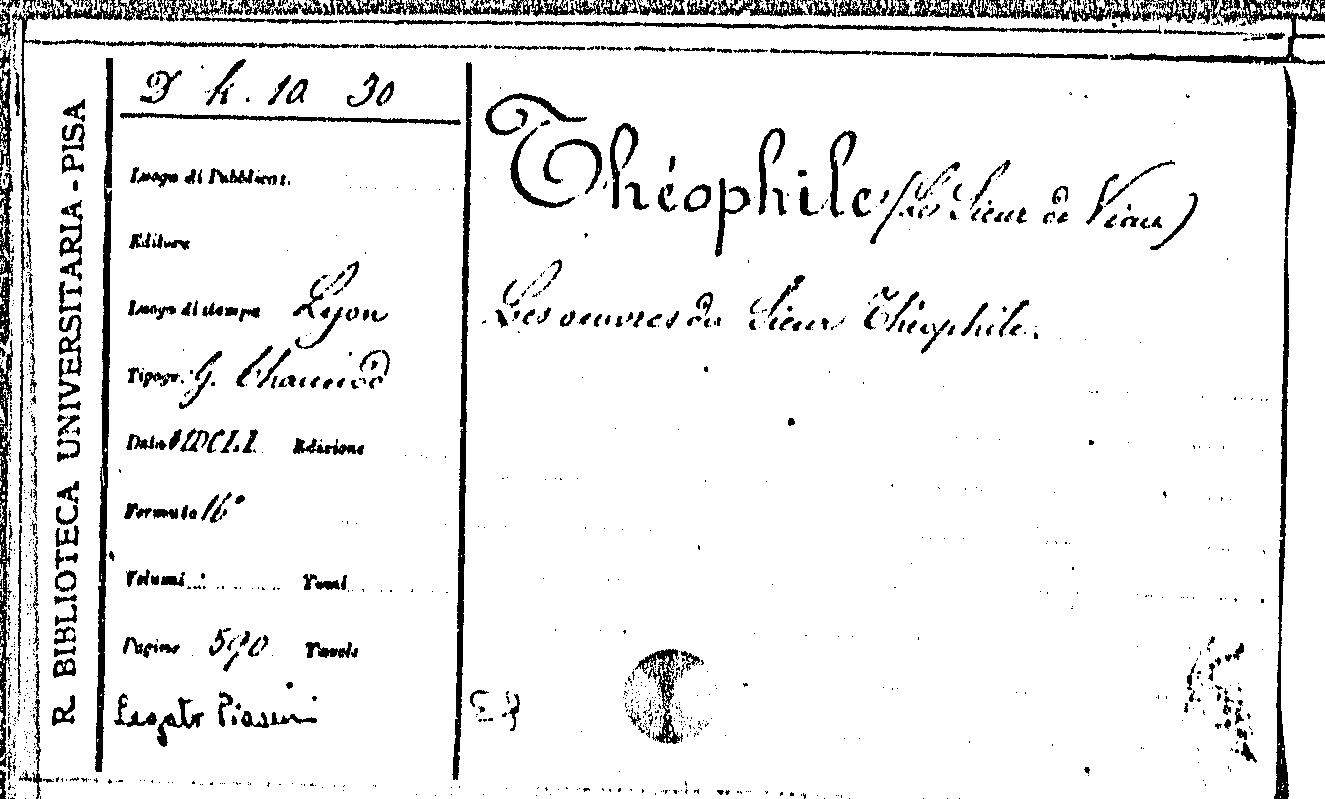 R. BIBLIOTECA UNIVERSITARIA - PISA
D k. 10 30
Luogo di Pubblicaz.
Editore
Luogo di stampa Lyon
Tipogr. G.
Data MDCLI. Edizione
Formato 16°
Volumi Tomi
Pagine 590 Tavole
Legato Piasini
Théophile (Le Sieur de Viau)
Les oeuvres du Sieur Théophile.